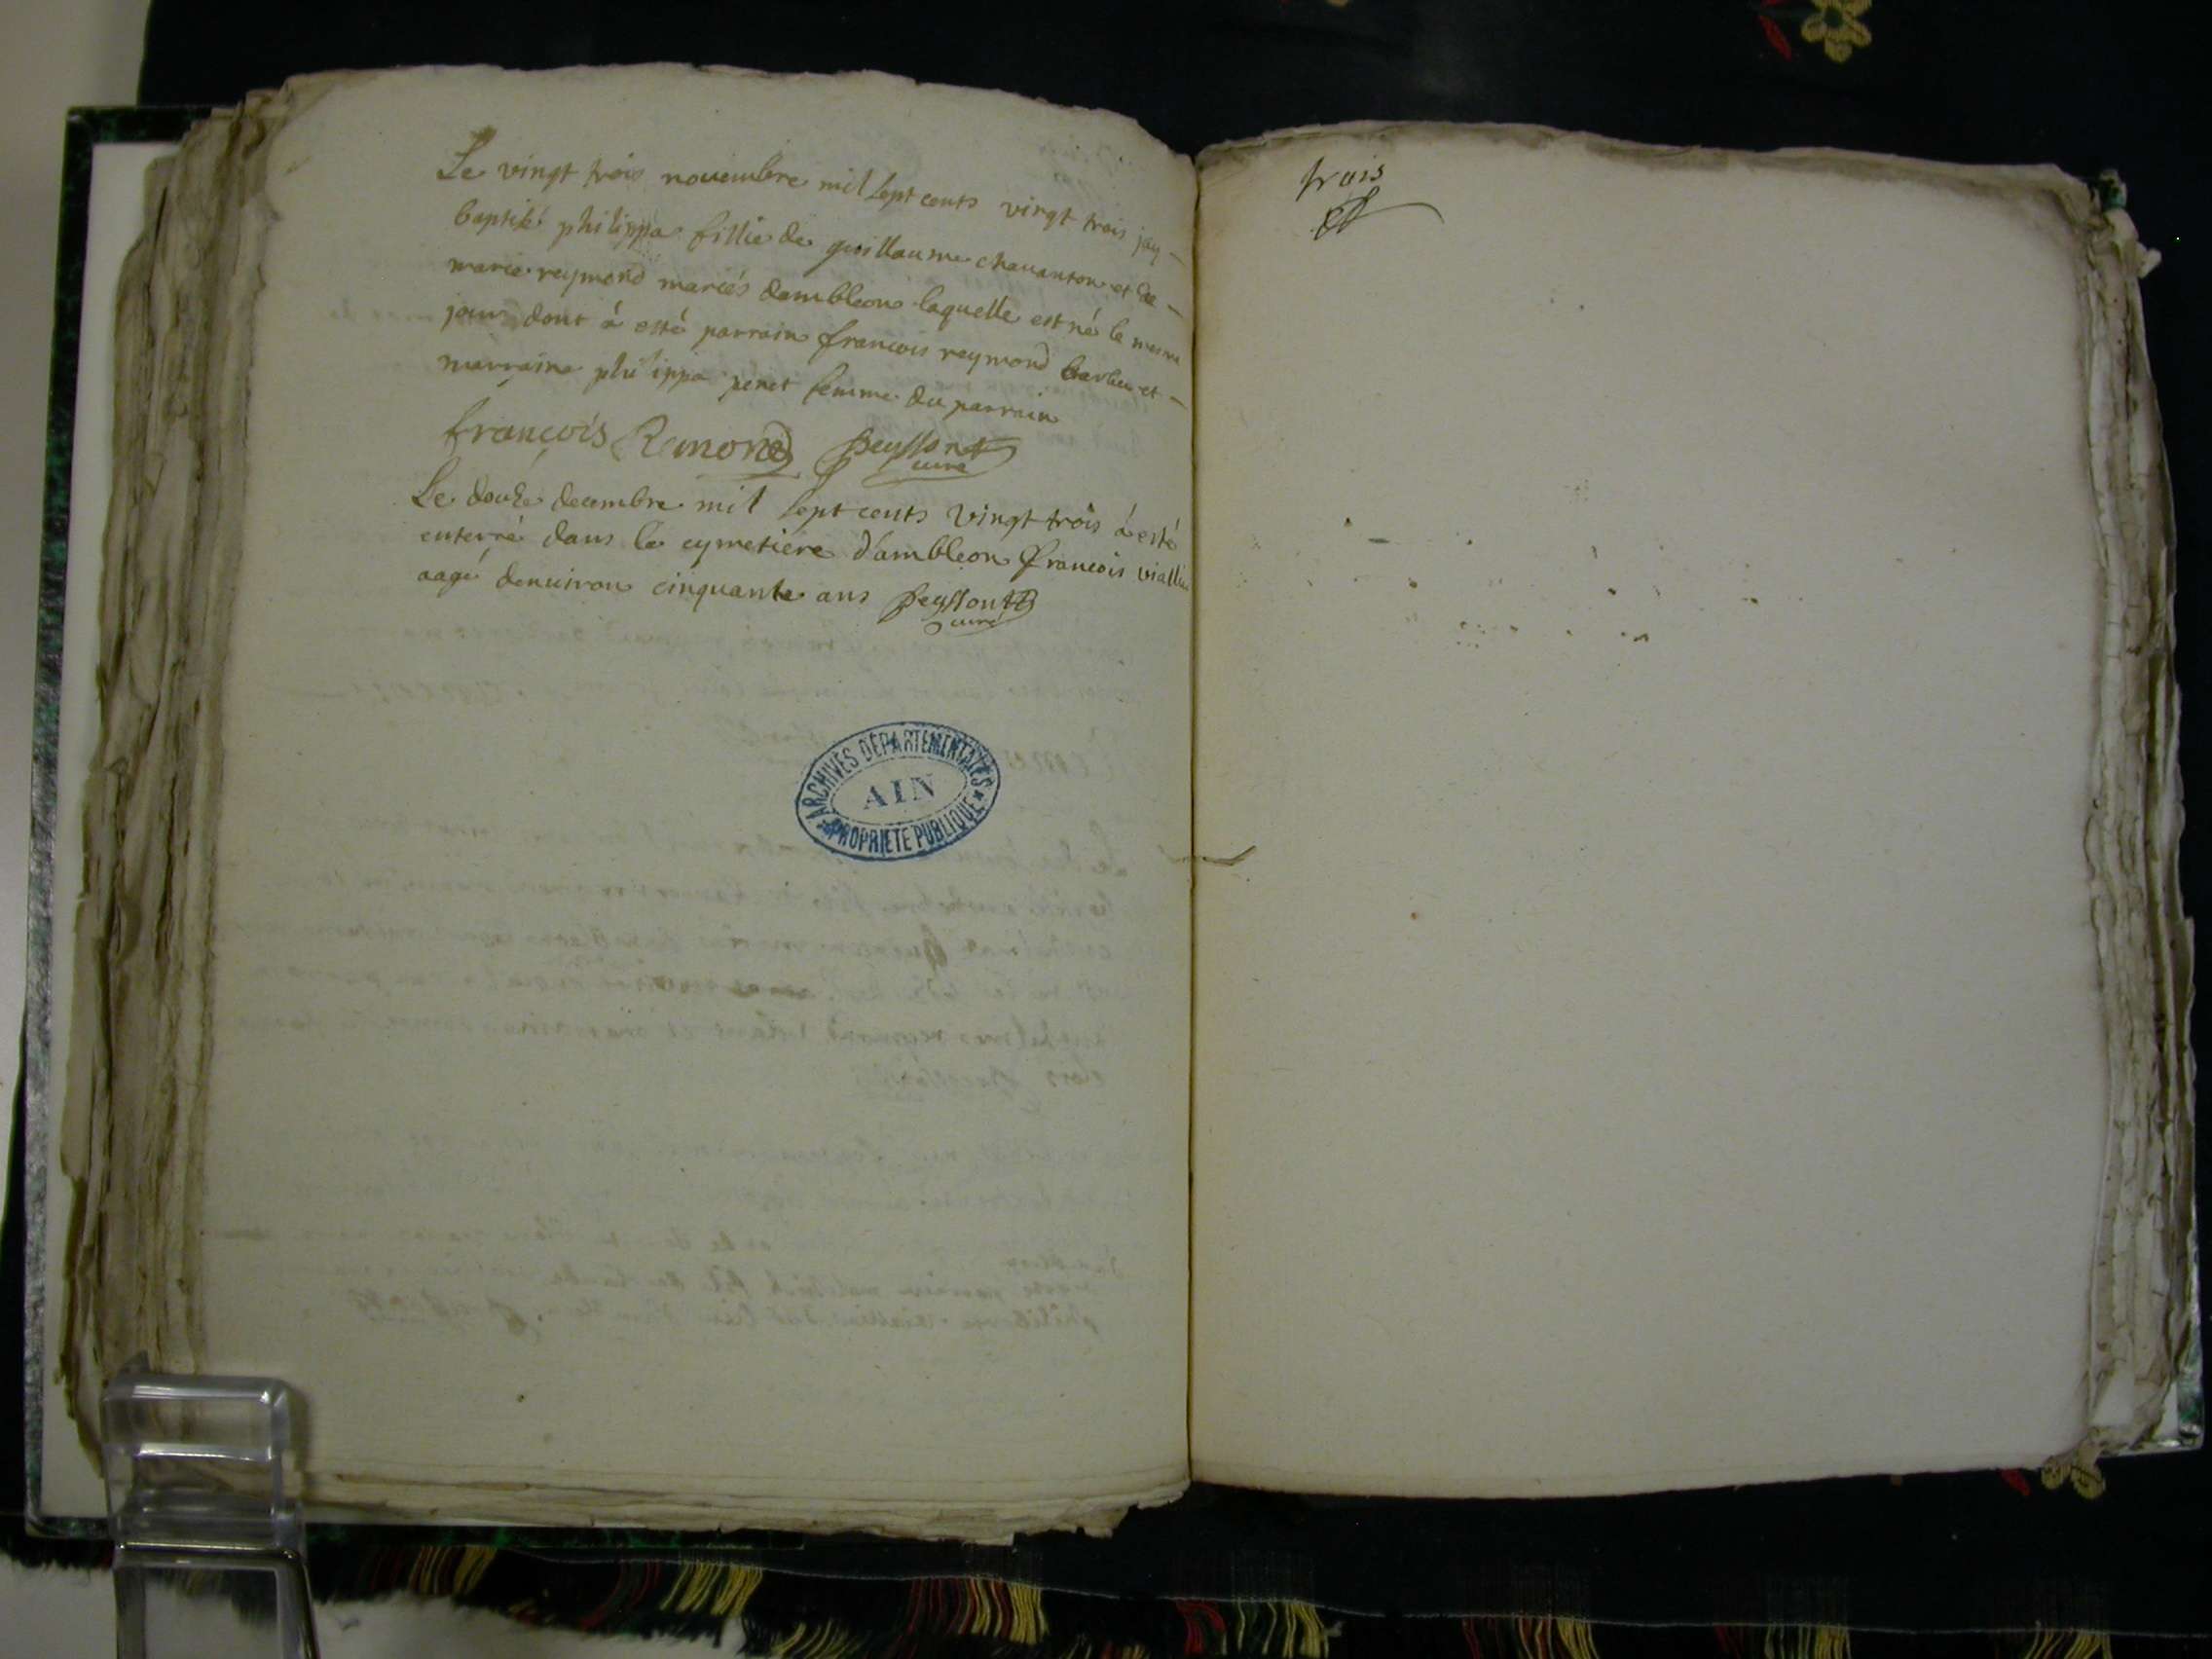 Le vingt trois nouembre mil sept cents vingt trois jay
baptisé philippa fillie de guillaume chauanton et de
marie reymond mariés dambleon laquelle est né le mesme
jour dont á esté parrain francois reymond et
marraine philippa peret femme du parrain
françois Remond peyssont
curé
Le douze decembre mil sept cents vingt trois á esté
enterré dans le cymetiere d'ambleon francois viallin
aagé denuiron cinquante ans peyssont
curé
ARCHIVES DÉPARTEMENTALES
AIN
PROPRIETE PUBLIQUE
trois